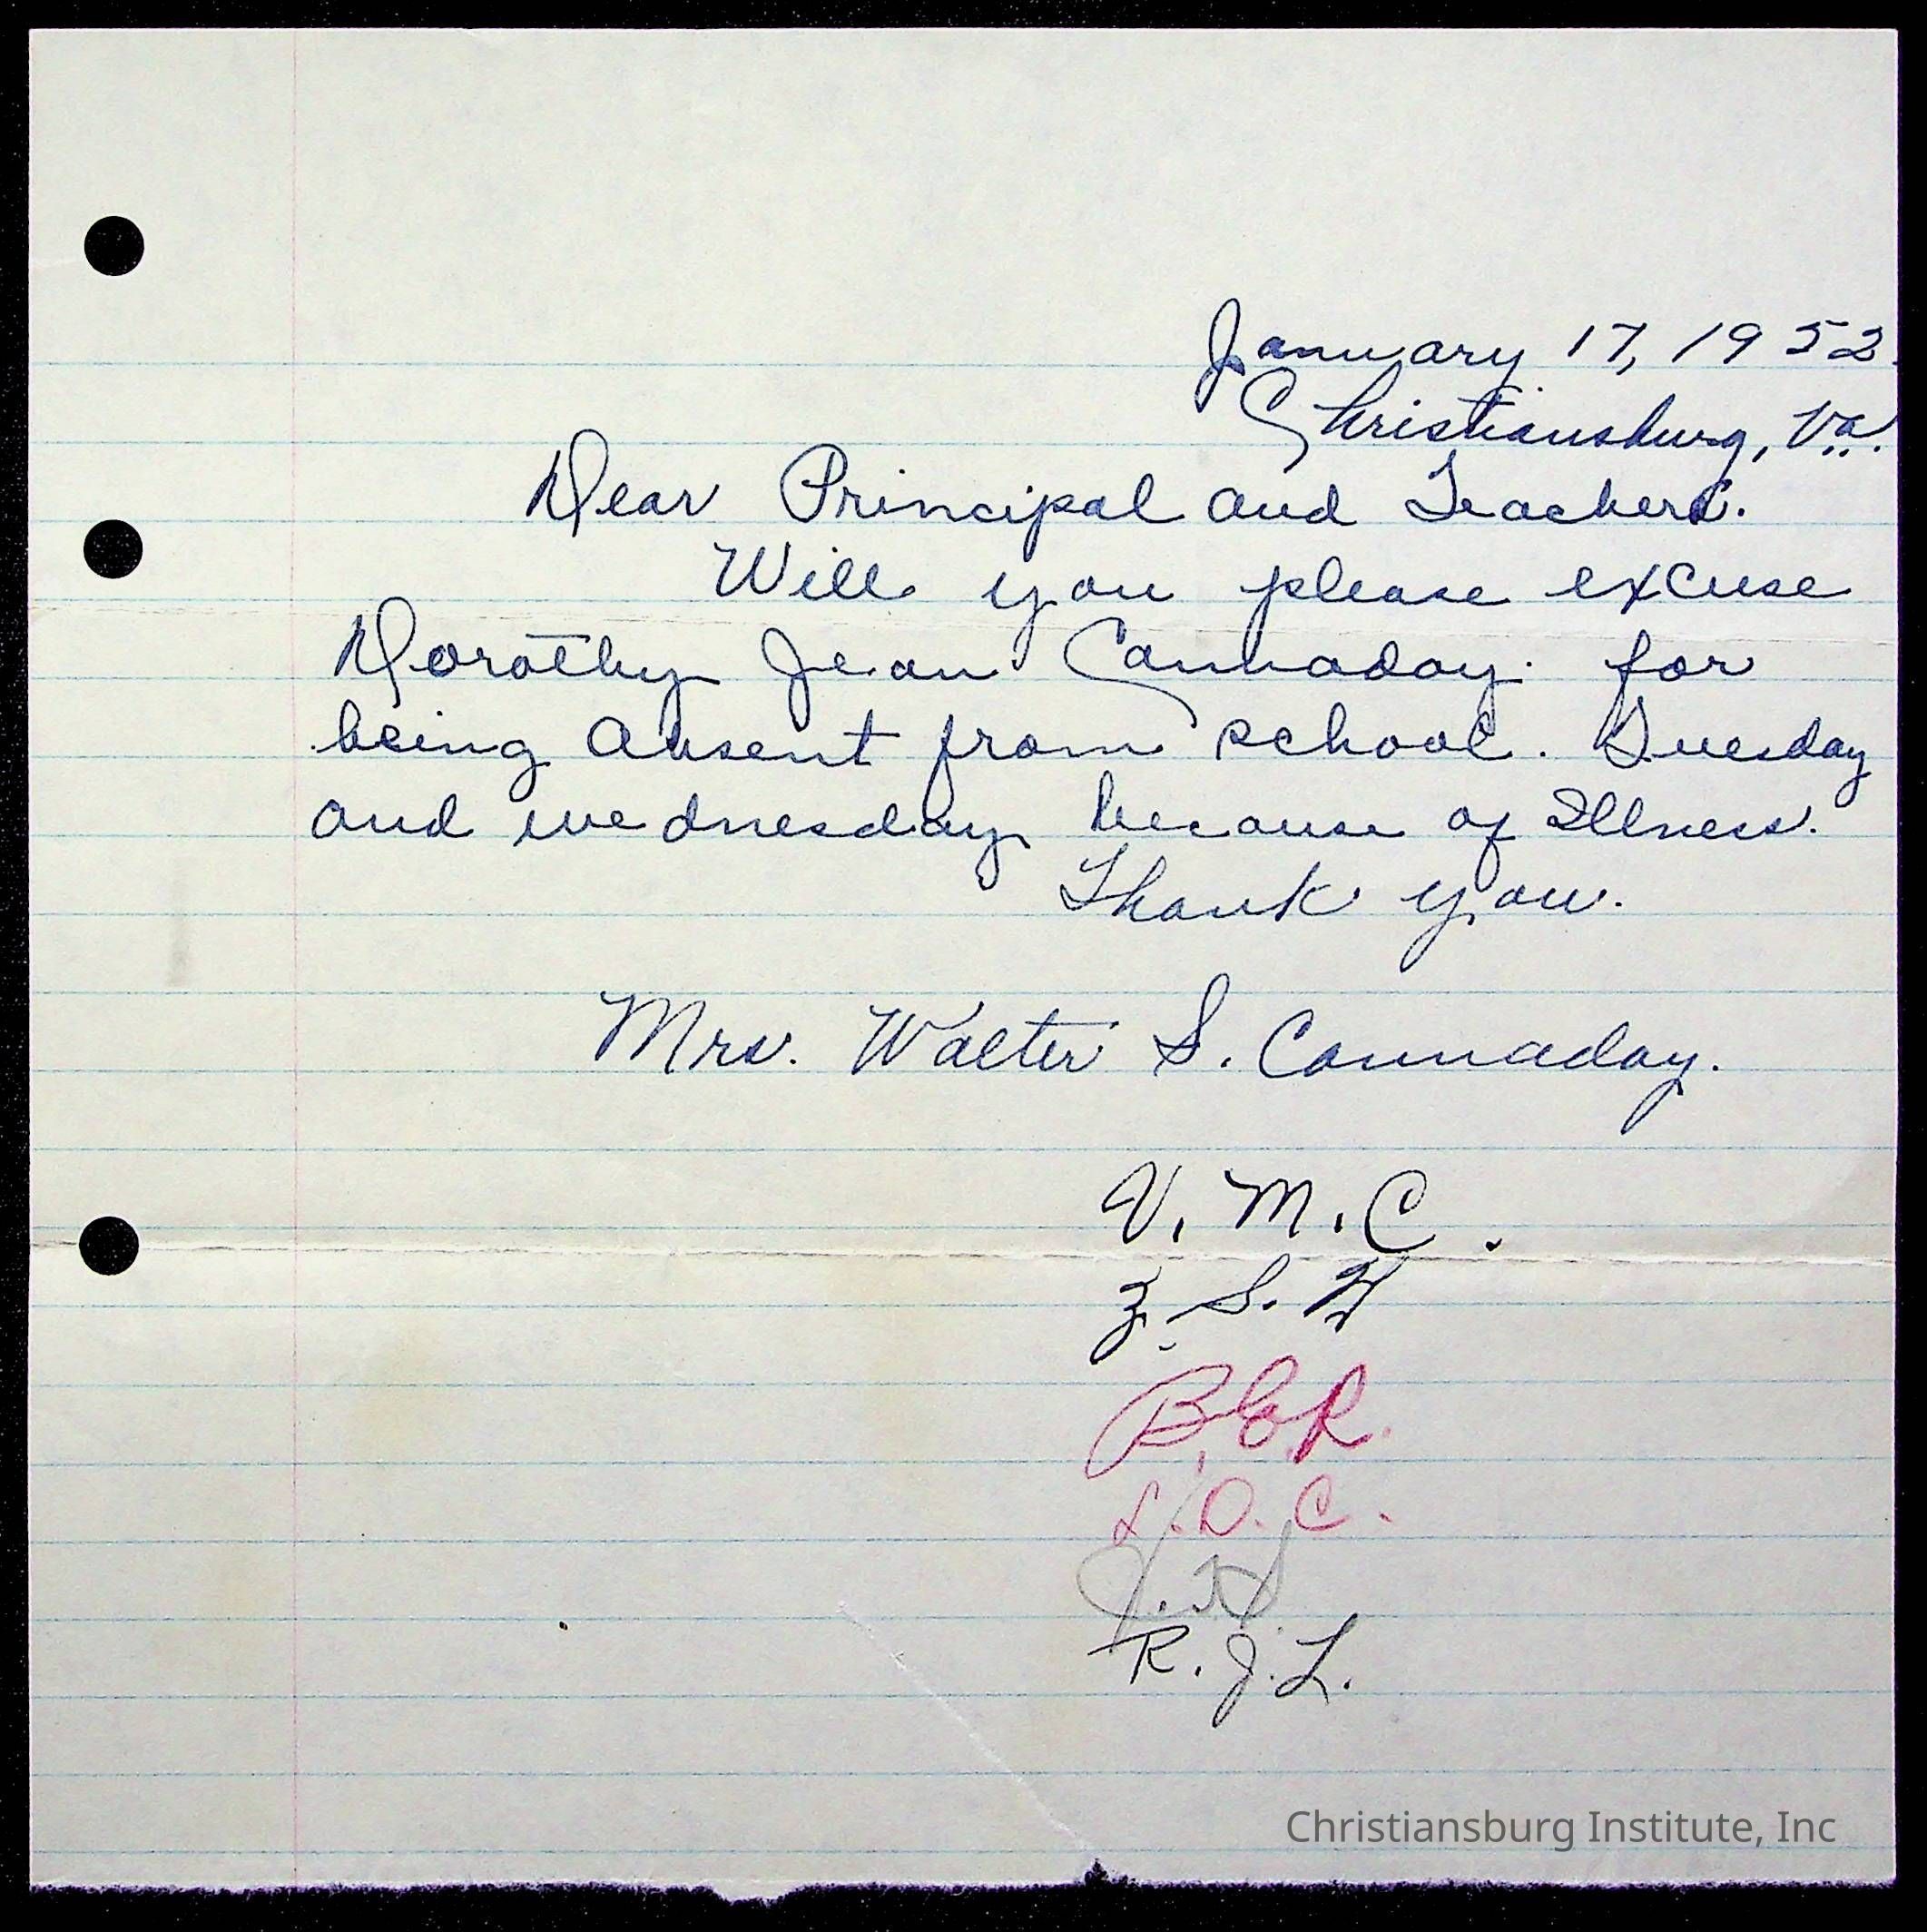 January 17, 1952.
Christiansburg, Va.
Dear Principal and Teachers.
Will you please excuse
Dorothy Jean Cannaday. for
being absent from school. Tuesday
and wednesday because of Illness.
Thank you.
Mrs. Walter S. Cannaday.
V. M. C.
Z. S. H
B. C. R.
L. D. C.
R. J. L.
Christiansburg Institute, Inc